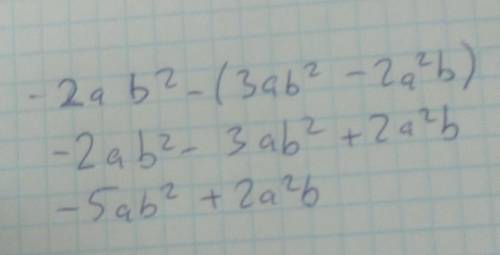 -2ab² - (3ab² - 2a²b)
-2ab² - 3ab² + 2a²b
-5ab² + 2a²b